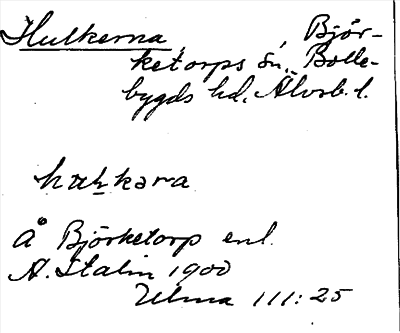 Hulkerna, Björ-
ketorps sn., Bolle-
bygds hd. Älvsb. l.
å Björketorp enl.
A. Stalin 1900
Ulma 111:25